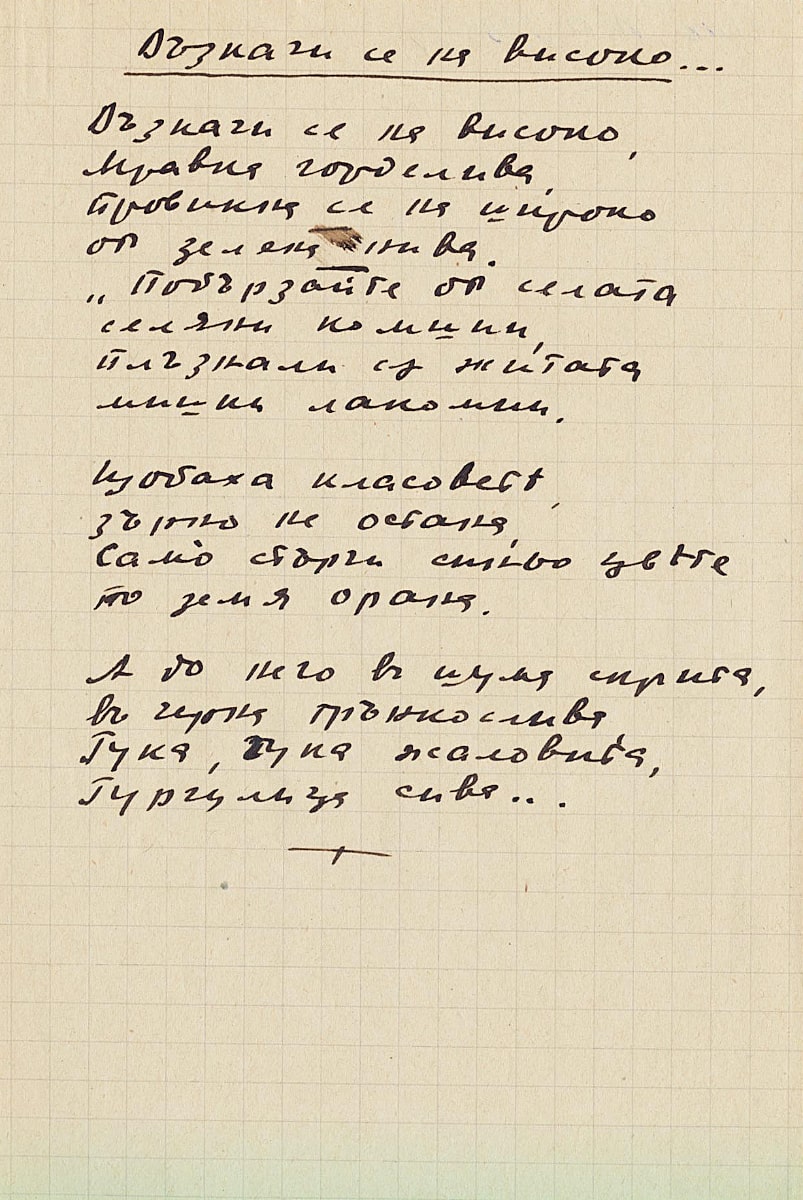 Възкачи се на високо...
Възкачи се на високо,
Мравка горделива,
Провикна се на широко
от зелена нива.
„Побързайте от селата
селяни комшии,
плъзнали сѫ житата
мишки лакомии.
Изобаха класоветѣ,
зърно не остана,
Само стърчи синьо цвѣте
по земя орана.
А до него въ шума скрита,
въ черна трънкослива
Гука, гука жаловита,
Гургулица сива...